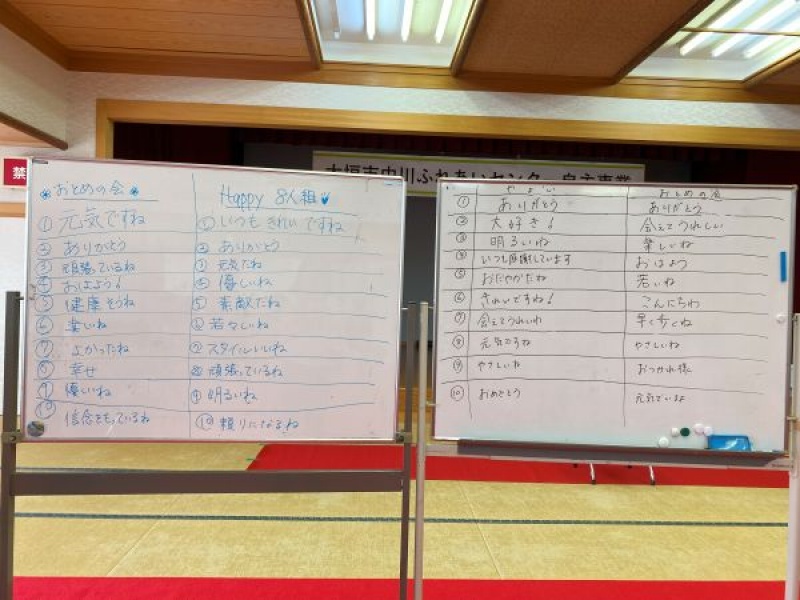 禁
大垣市中川ふれあいセンター 自主事業
おとめの会
① 元気ですね
② ありがとう
③ 頑張っているね
④ おはよう!
⑤ 健康そうね
⑥ 凄いね
⑦ よかったね
⑧ 幸せ
⑨ 優しいね
⑩ 信念をもっているね
Happy 8人組
① いつもきれいですね
② ありがとう
③ 元気だね
④ 優しいね
⑤ 素敵だね
⑥ 若々しいね
⑦ スタイルいいね
⑧ 頑張っているね
⑨ 明るいね
⑩ 頼りになるね
やよい おとめの会
① ありがとう ありがとう
② 大好き! 会えてうれしい
③ 明るいね 楽しいね
④ いつも感謝しています おはよう
⑤ おだやかだね 若いね
⑥ きれいですね! こんにちわ
⑦ 会えてうれしいわ 早く歩くね
⑧ 元気ですね やさしいね
⑨ やさしいね おつかれ様
⑩ おめでとう 元気でいるよ